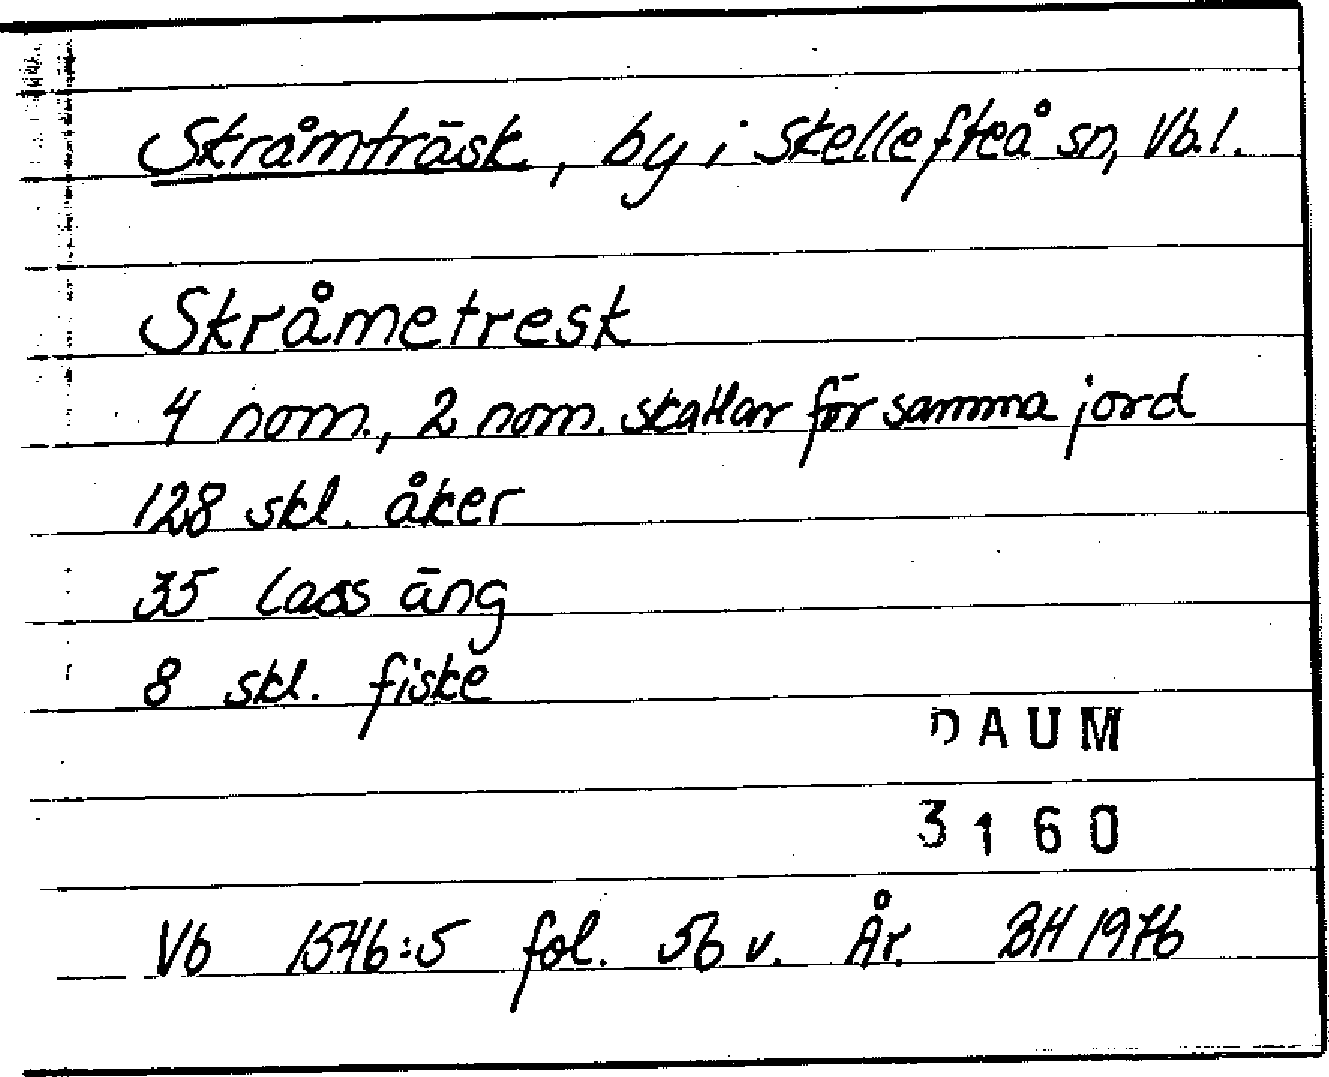 Skråmträsk, by i Skellefteå sn, Vb.l.
Skråmetresk
4 nom., 2 nom. skattar för samma jord
128 skl. åker
35 lass äng
8 skl. fiske
DAUM
3160
Vb 1546:5 fol. 56 v. År. BH 1976